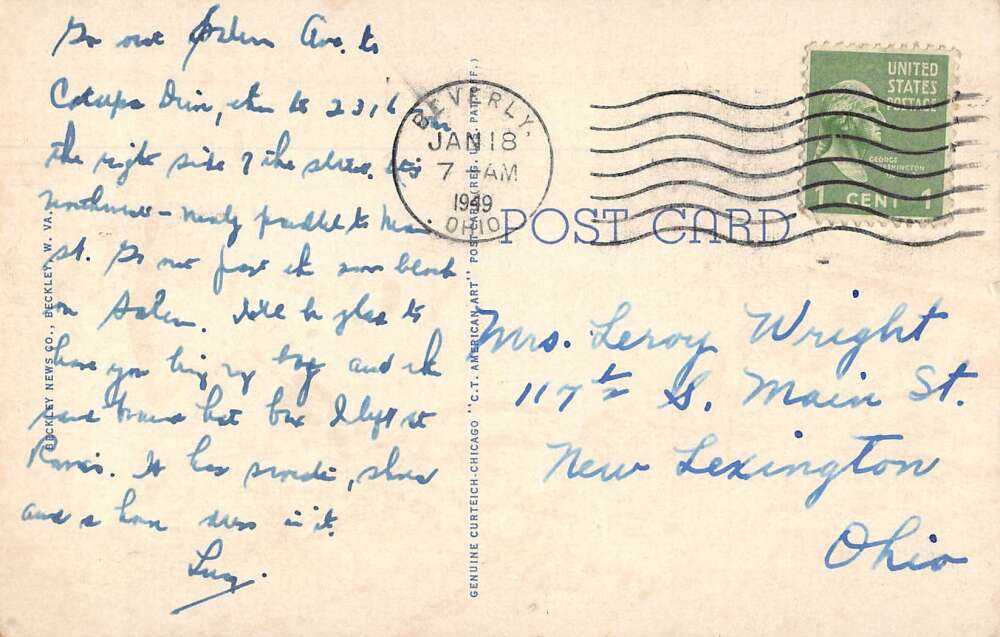 Go out Salem Ave. to
Catalpa Drive, then to 2316 on
the right side of the street. It's
northwest - nearly parallel to Main
St. Go out past the blank
on Salem. We'll be glad to
have you bring my bag and the
and hat box I left at
Rosie's. It has sweater, shoes
and a house dress in it.
Lucy.
BECKLEY NEWS CO., BECKLEY, W. VA.
GENUINE CURTEICH-CHICAGO "C.T. AMERICAN ART" POST CARD (REG. U.S. PAT. OFF.)
BEVERLY,
JAN 18
7 AM
1949
OHIO
UNITED
STATES
POSTAGE
GEORGE
WASHINGTON
1 CENT 1
POST CARD
Mrs. Leroy Wright
117½ S. Main St.
New Lexington
Ohio